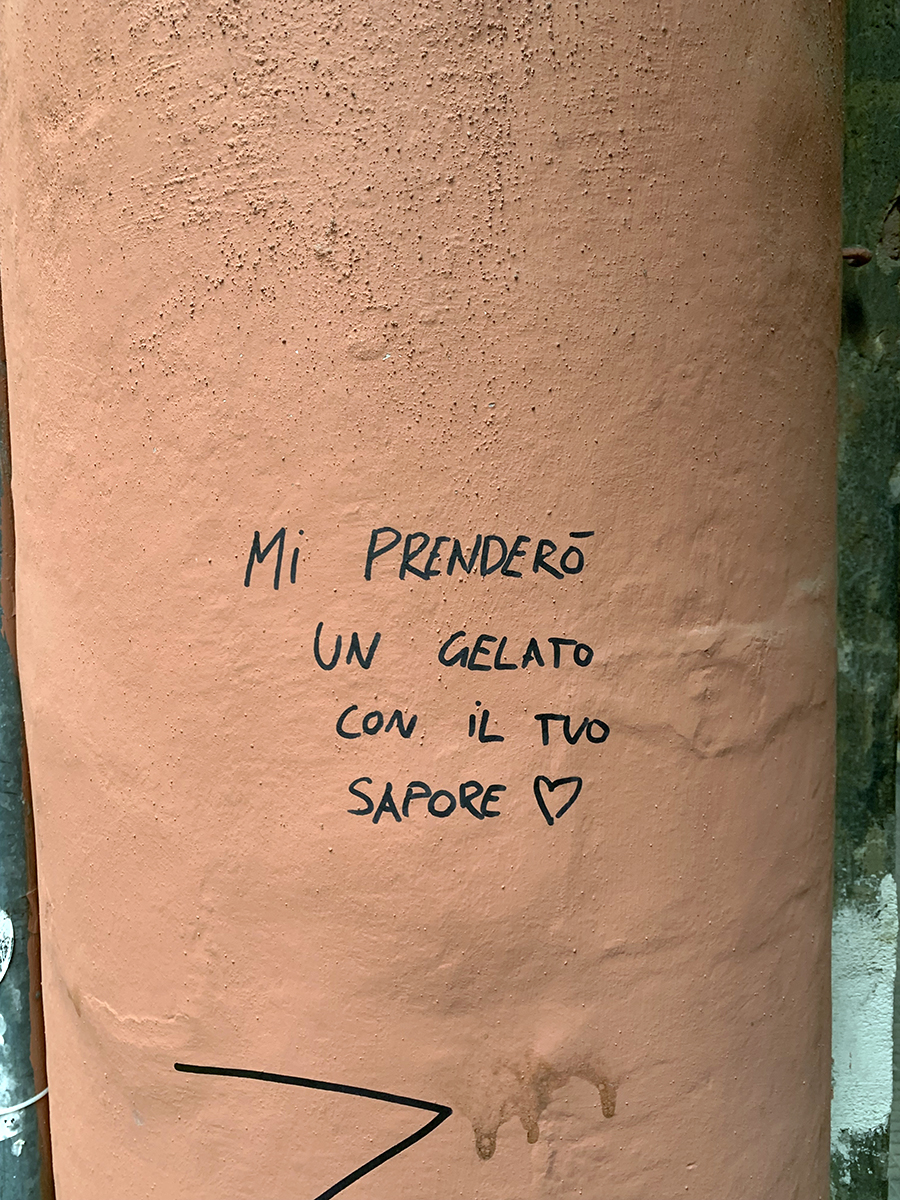 Mi PRENDERÒ
UN GELATO
CON iL TUO
SAPORE ♡